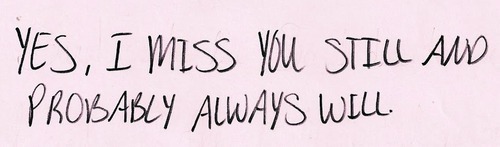 YES, I MISS YOU STILL AND
PROBABLY ALWAYS WILL.